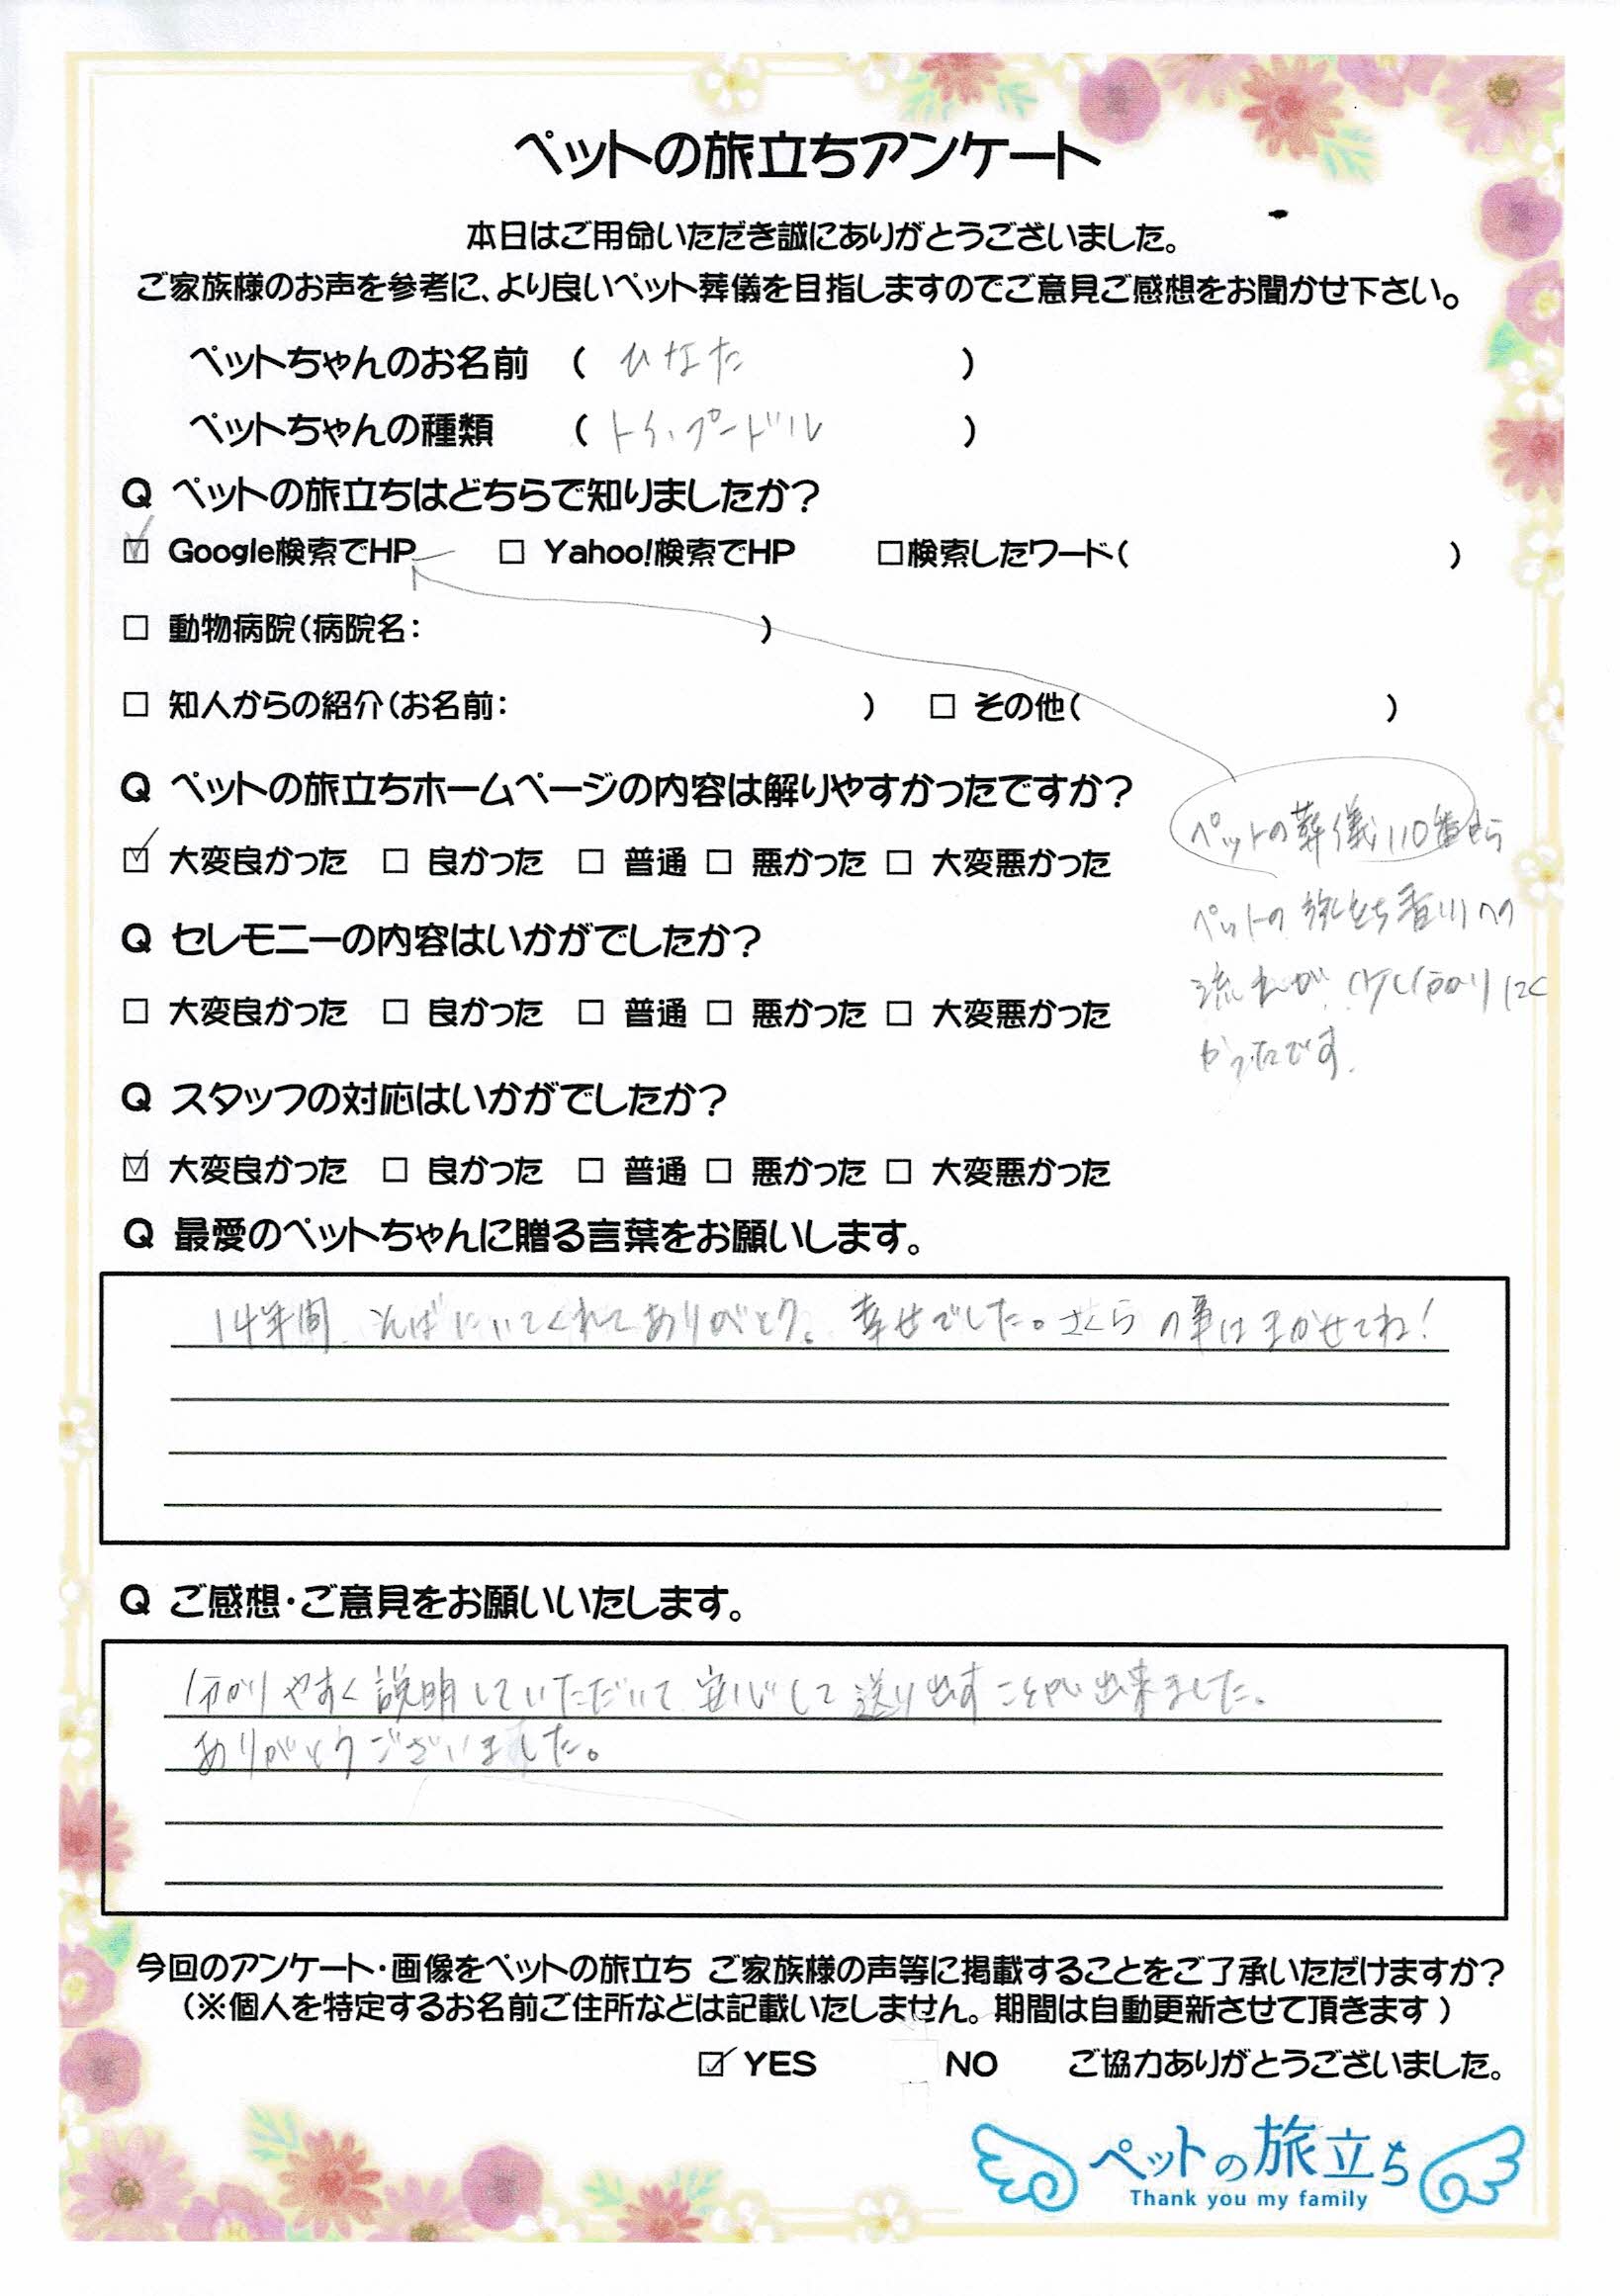 ペットの旅立ちアンケート
本日はご用命いただき誠にありがとうございました。
ご家族様のお声を参考に、より良いペット葬儀を目指しますのでご意見ご感想をお聞かせ下さい。
ペットちゃんのお名前 ( ひなた )
ペットちゃんの種類 ( トイ・プードル )
Q ペットの旅立ちはどちらで知りましたか?
☑ Google検索でHP □ Yahoo!検索でHP □検索したワード( )
□ 動物病院(病院名: )
□ 知人からの紹介(お名前: ) □ その他( )
Q ペットの旅立ちホームページの内容は解りやすかったですか?
☑ 大変良かった □ 良かった □ 普通 □ 悪かった □ 大変悪かった
ペットの葬儀110番から
ペットの旅立ち香川への
流れが、少し分かりにく
かったです。
Q セレモニーの内容はいかがでしたか?
□ 大変良かった □ 良かった □ 普通 □ 悪かった □ 大変悪かった
Q スタッフの対応はいかがでしたか?
☑ 大変良かった □ 良かった □ 普通 □ 悪かった □ 大変悪かった
Q 最愛のペットちゃんに贈る言葉をお願いします。
14年間、そばにいてくれてありがとう。幸せでした。さくらの事はまかせてね!
Q ご感想・ご意見をお願いいたします。
分かりやすく説明していただいて安心して送り出すことが出来ました。
ありがとうございました。
今回のアンケート・画像をペットの旅立ち ご家族様の声等に掲載することをご了承いただけますか?
(※個人を特定するお名前ご住所などは記載いたしません。期間は自動更新させて頂きます)
☑ YES NO ご協力ありがとうございました。
ペットの旅立ち
Thank you my family